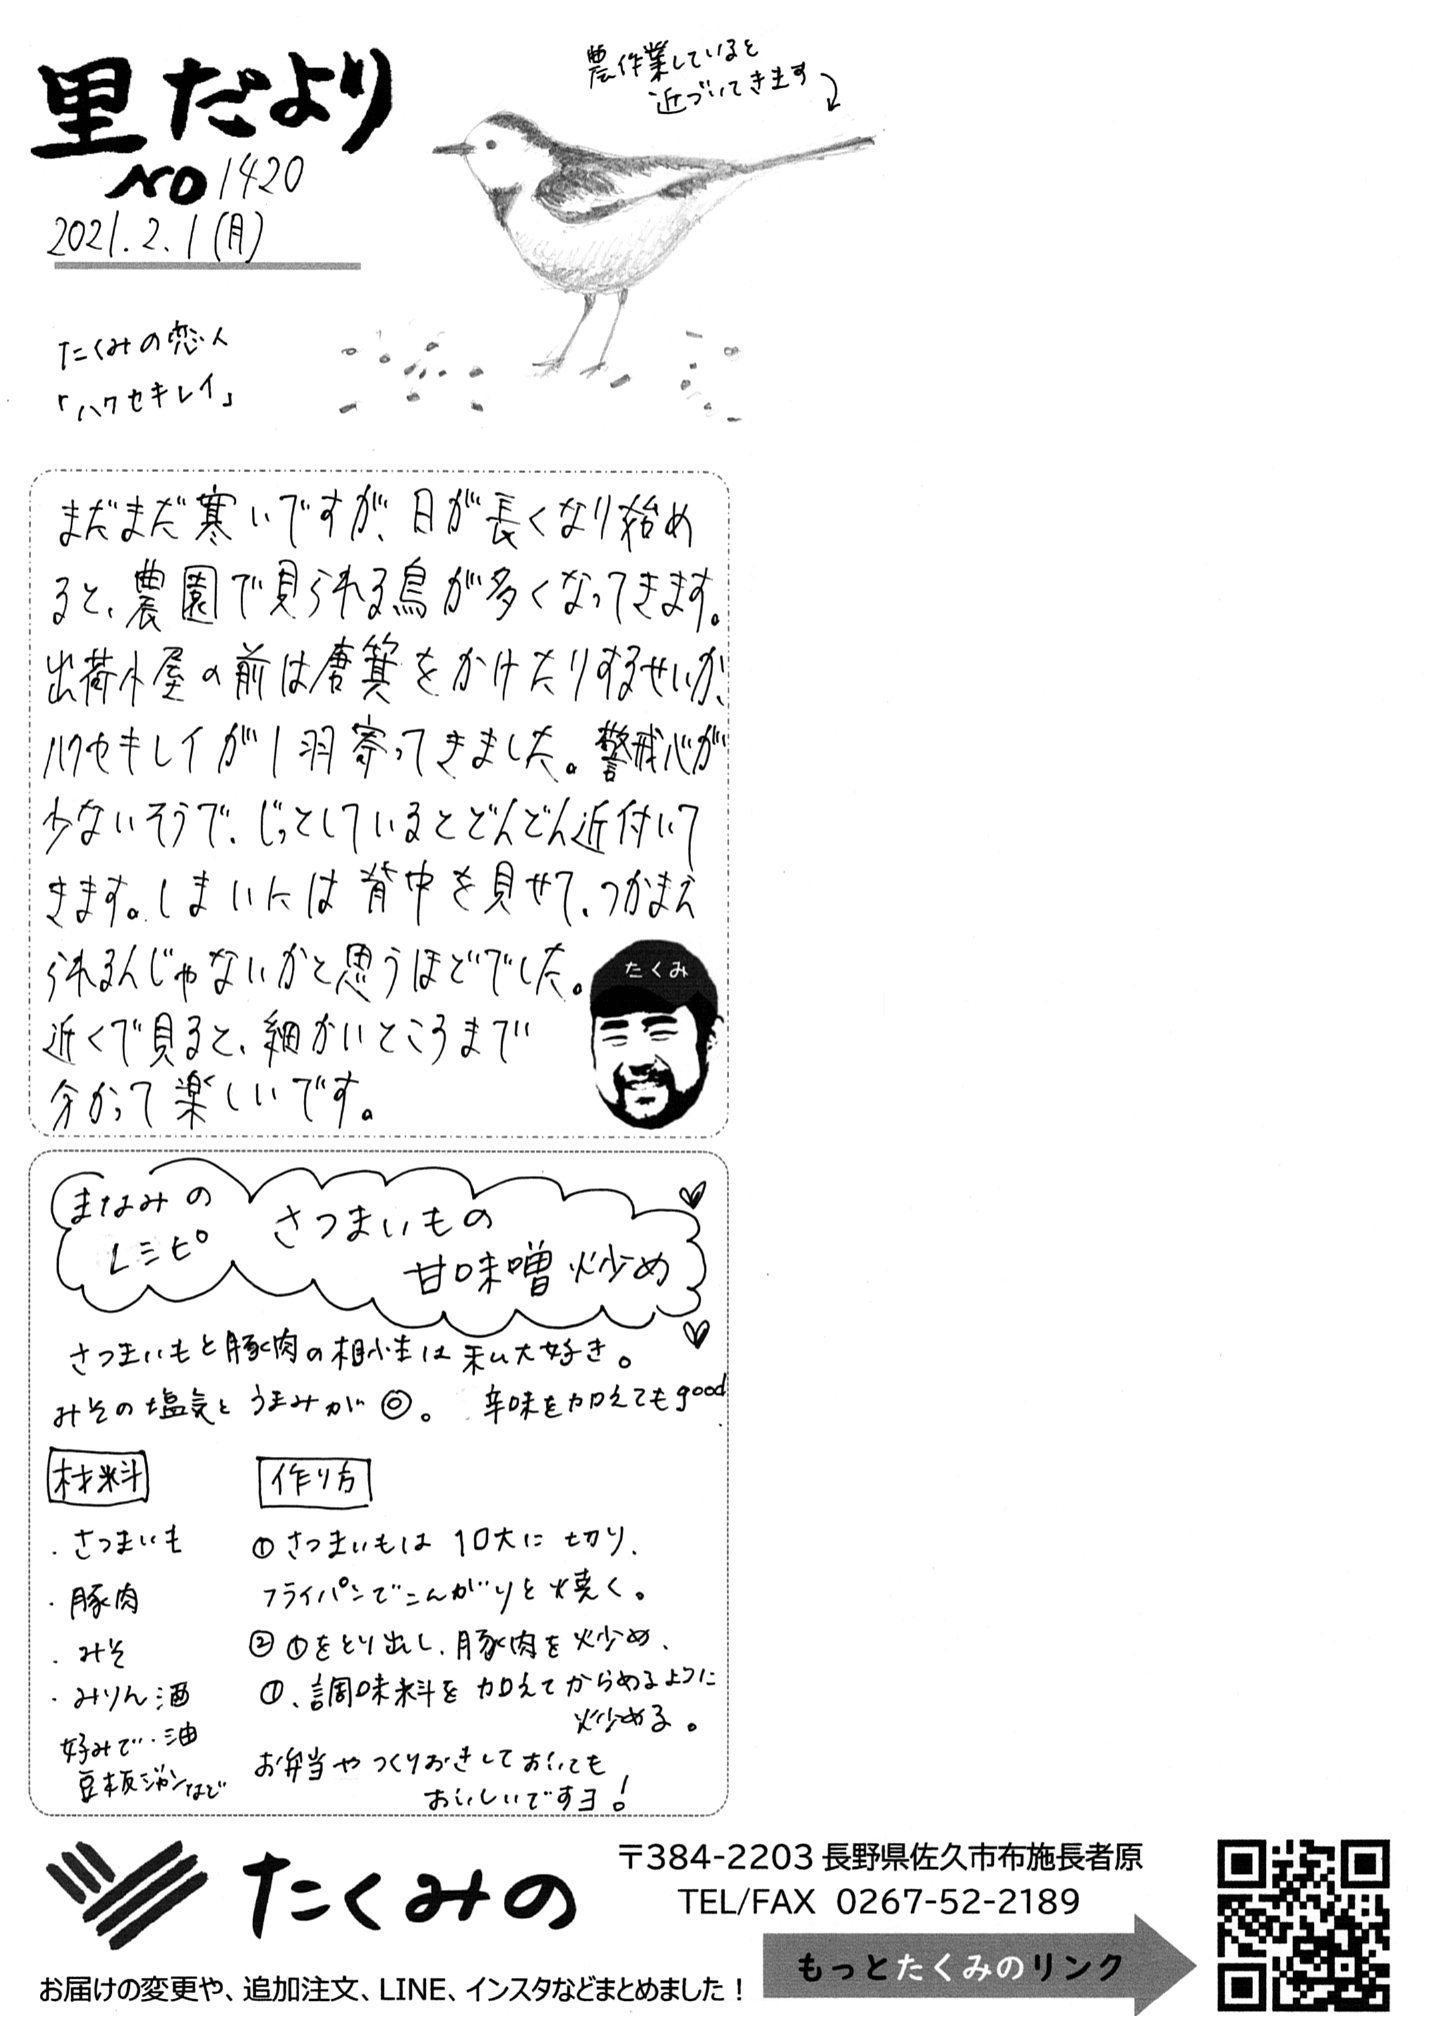 里だより
NO 1420
2021.2.1(月)
農作業していると
近づいてきます
たくみの恋人
「ハクセキレイ」
まだまだ寒いですが、日が長くなり始め
ると、農園で見られる鳥が多くなってきます。
出荷小屋の前は唐箕をかけたりするせいか、
ハクセキレイが1羽寄ってきました。警戒心が
少ないそうで、じっとしているとどんどん近付いて
きます。しまいには背中を見せて、つかまえ
られるんじゃないかと思うほどでした。
近くで見ると、細かいところまで
分かって楽しいです。
たくみ
まなみの
レシピ
さつまいもの
甘味噌炒め
さつまいもと豚肉の相性は私大好き。
みその塩気とうまみが◎。 辛味を加えてもgood
材料
・さつまいも
・豚肉
・みそ
・みりん酒
好みで・油
豆板ジャンなど
作り方
①さつまいもは1口大に切り、
フライパンでこんがりと焼く。
②①をとり出し、豚肉を炒め、
①、調味料を加えてからめるように
炒める。
お弁当やつくりおきしておいても
おいしいですヨ!
たくみの
〒384-2203 長野県佐久市布施長者原
TEL/FAX 0267-52-2189
もっとたくみのリンク
お届けの変更や、追加注文、LINE、インスタなどまとめました！